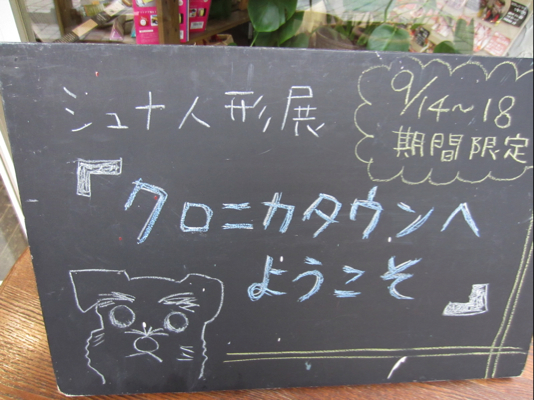 ジュナ人形展
9/14~18
期間限定
『クロニカタウンへ
ようこそ』